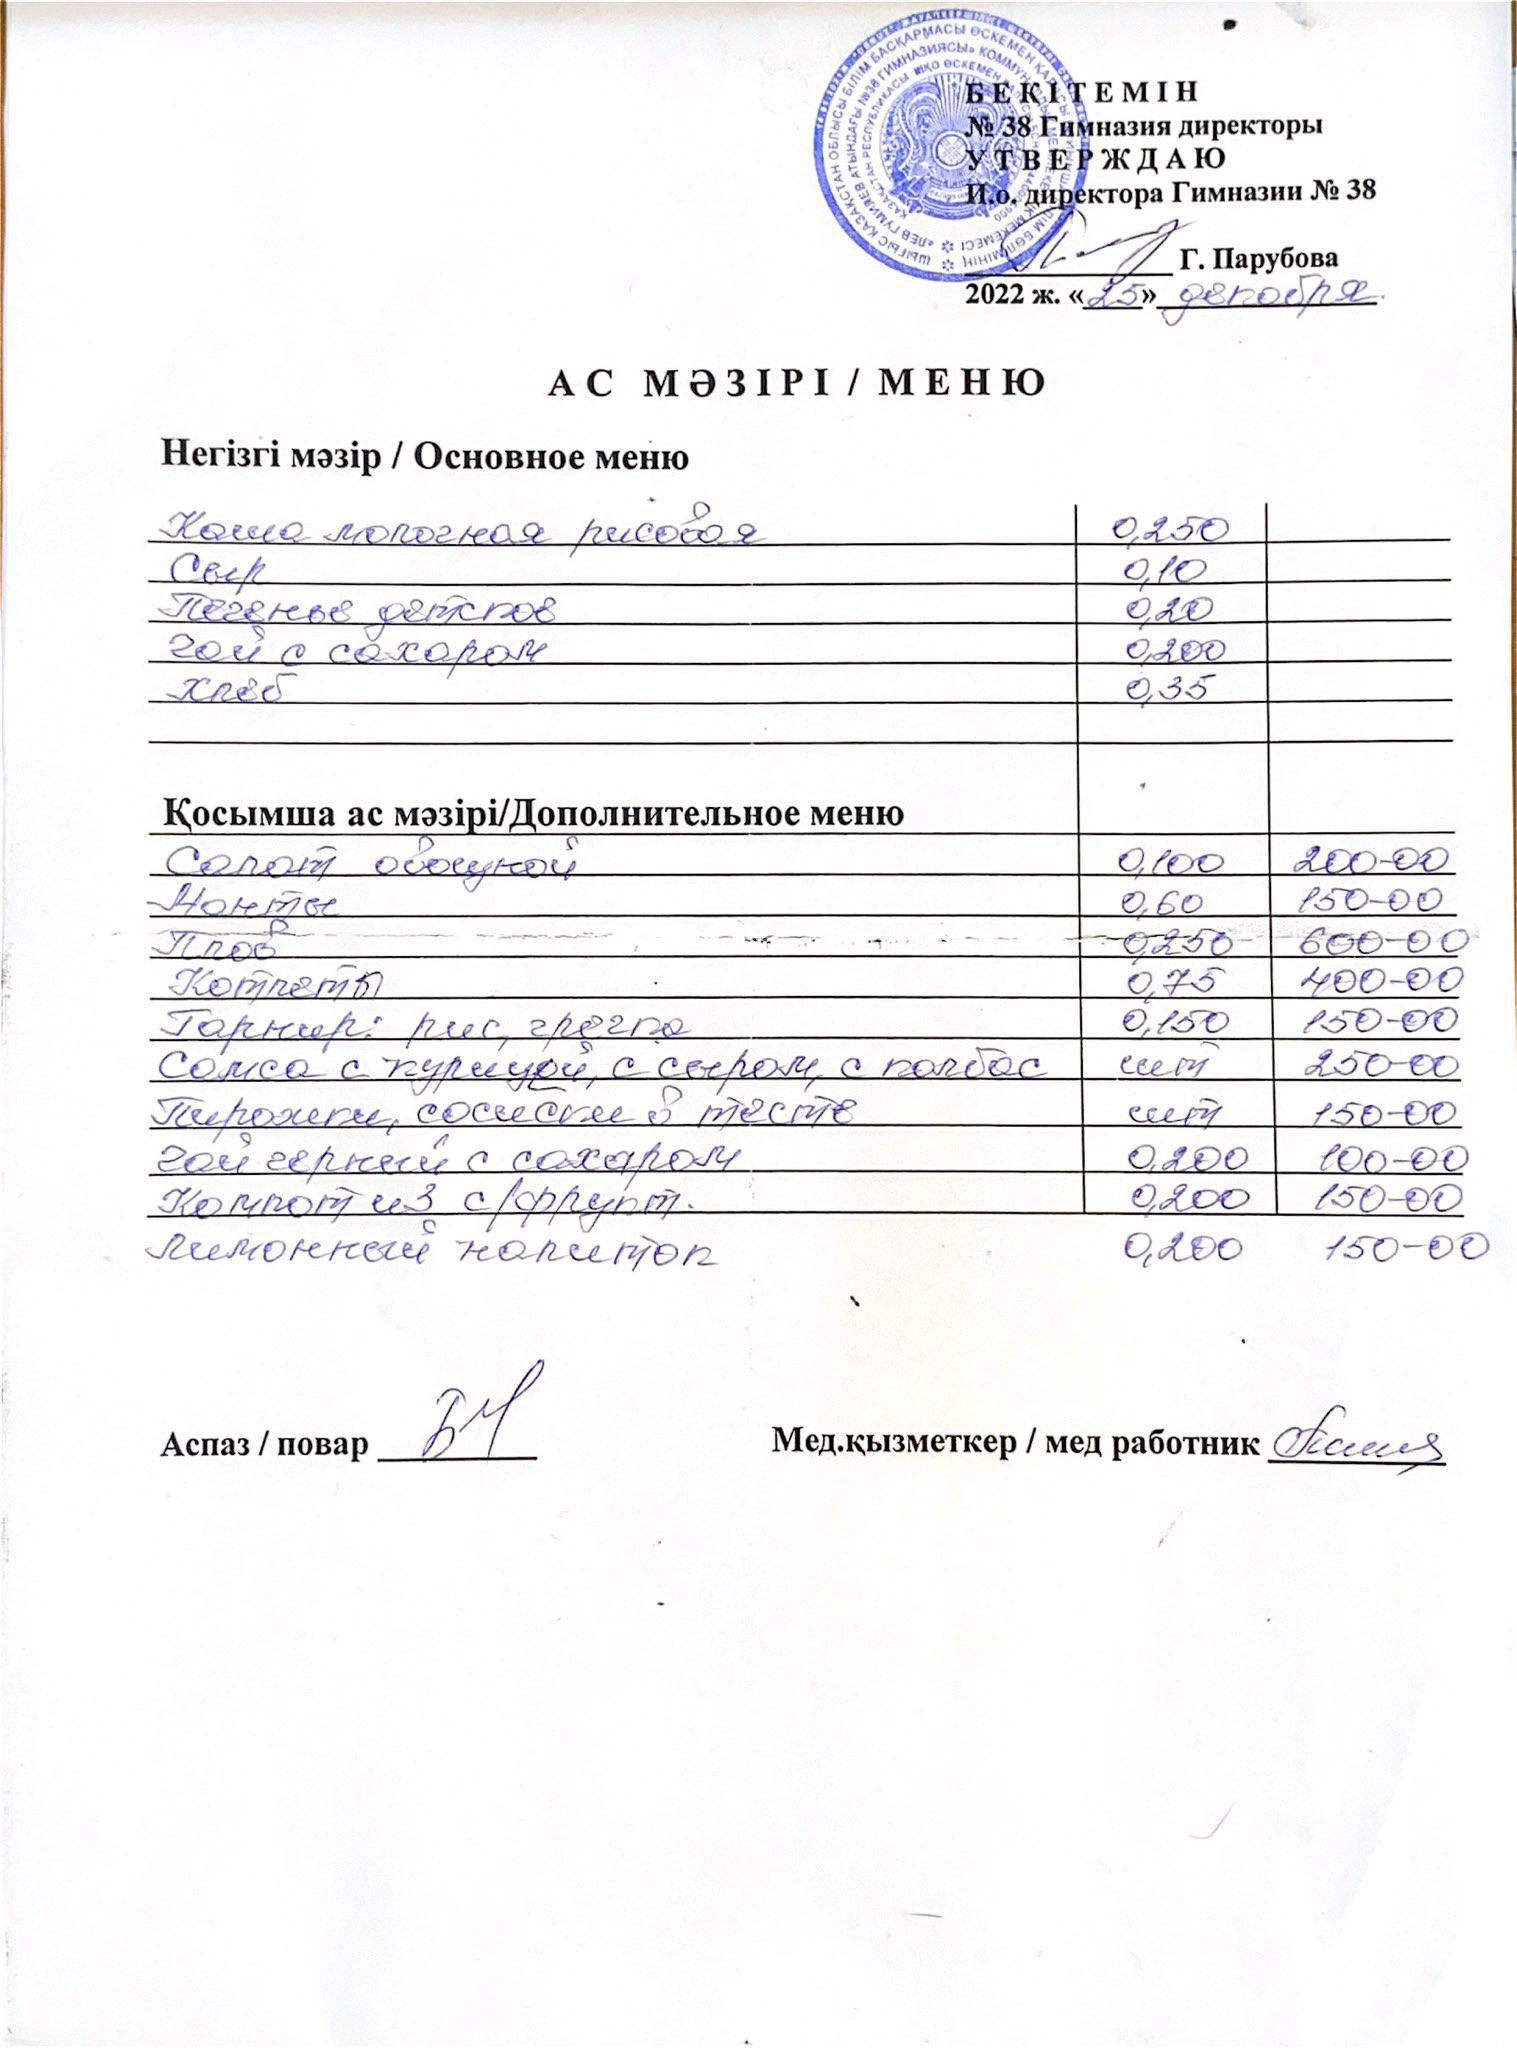 ШЫҒЫС ҚАЗАҚСТАН ОБЛЫСЫ БІЛІМ БАСҚАРМАСЫ ӨСКЕМЕН
«ЛЕВ ГУМИЛЕВ АТЫНДАҒЫ №38 ГИМНАЗИЯСЫ»
ҚАЗАҚСТАН РЕСПУБЛИКАСЫ ШҚО ӨСКЕМЕН
БЕКІТЕМІН
№ 38 Гимназия директоры
УТВЕРЖДАЮ
И.о. директора Гимназии № 38
Г. Парубова
2022 ж. «25» декабря
АС МӘЗІРІ / МЕНЮ
Негізгі мәзір / Основное меню
Каша молочная рисовая 0,250
Сыр 0,10
Печенье детское 0,20
Чай с сахаром 0,200
Хлеб 0,35
Қосымша ас мәзірі/Дополнительное меню
Салат овощной 0,100 200-00
Манты 0,60 150-00
Плов 0,250 600-00
Котлеты 0,75 400-00
Гарнир: рис, гречка 0,150 150-00
Самса с курицей, с сыром, с колбас шт 250-00
Пирожки, сосиски в тесте шт 150-00
Чай черный с сахаром 0,200 100-00
Компот из с/фрукт. 0,200 150-00
Лимонный напиток 0,200 150-00
Аспаз / повар
Мед.қызметкер / мед работник